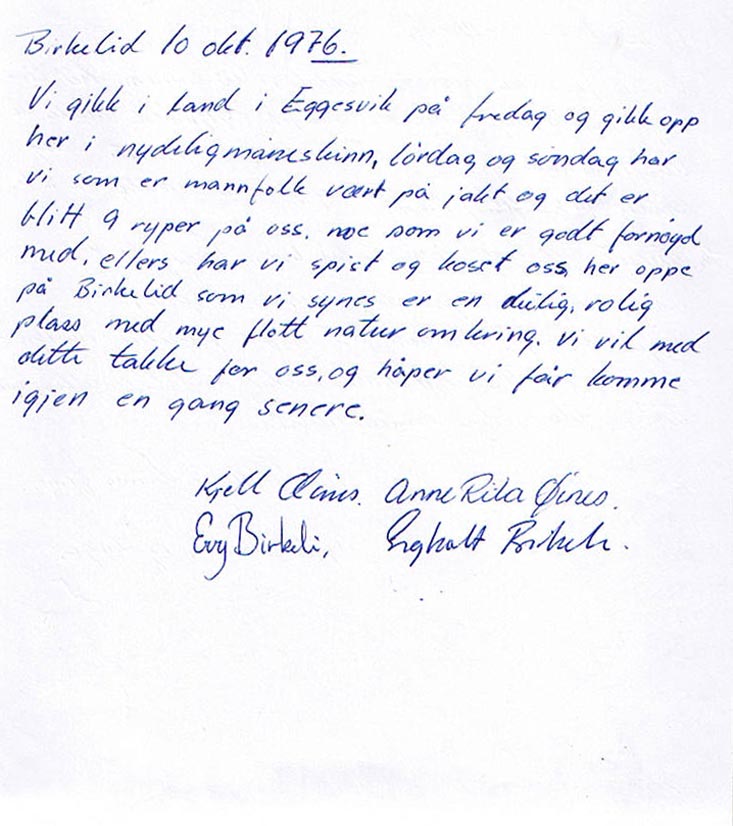 Birkelid 10 okt. 1976.
Vi gikk i land i Eggesvik på fredag og gikk opp
her i nydelig måneskinn, lördag og söndag har
vi som er mannfolk vært på jakt og det er
blitt 9 ryper på oss. noe som vi er godt fornøyd
med, ellers har vi spist og koset oss, her oppe
på Birkelid som vi synes er en deilig, rolig
plass med mye flott natur omkring. Vi vil med
dette takke for oss, og håper vi får komme
igjen en gang senere.
Kjell Øines. Anne Rita Øines.
Evy Birkeli, Birkeli.